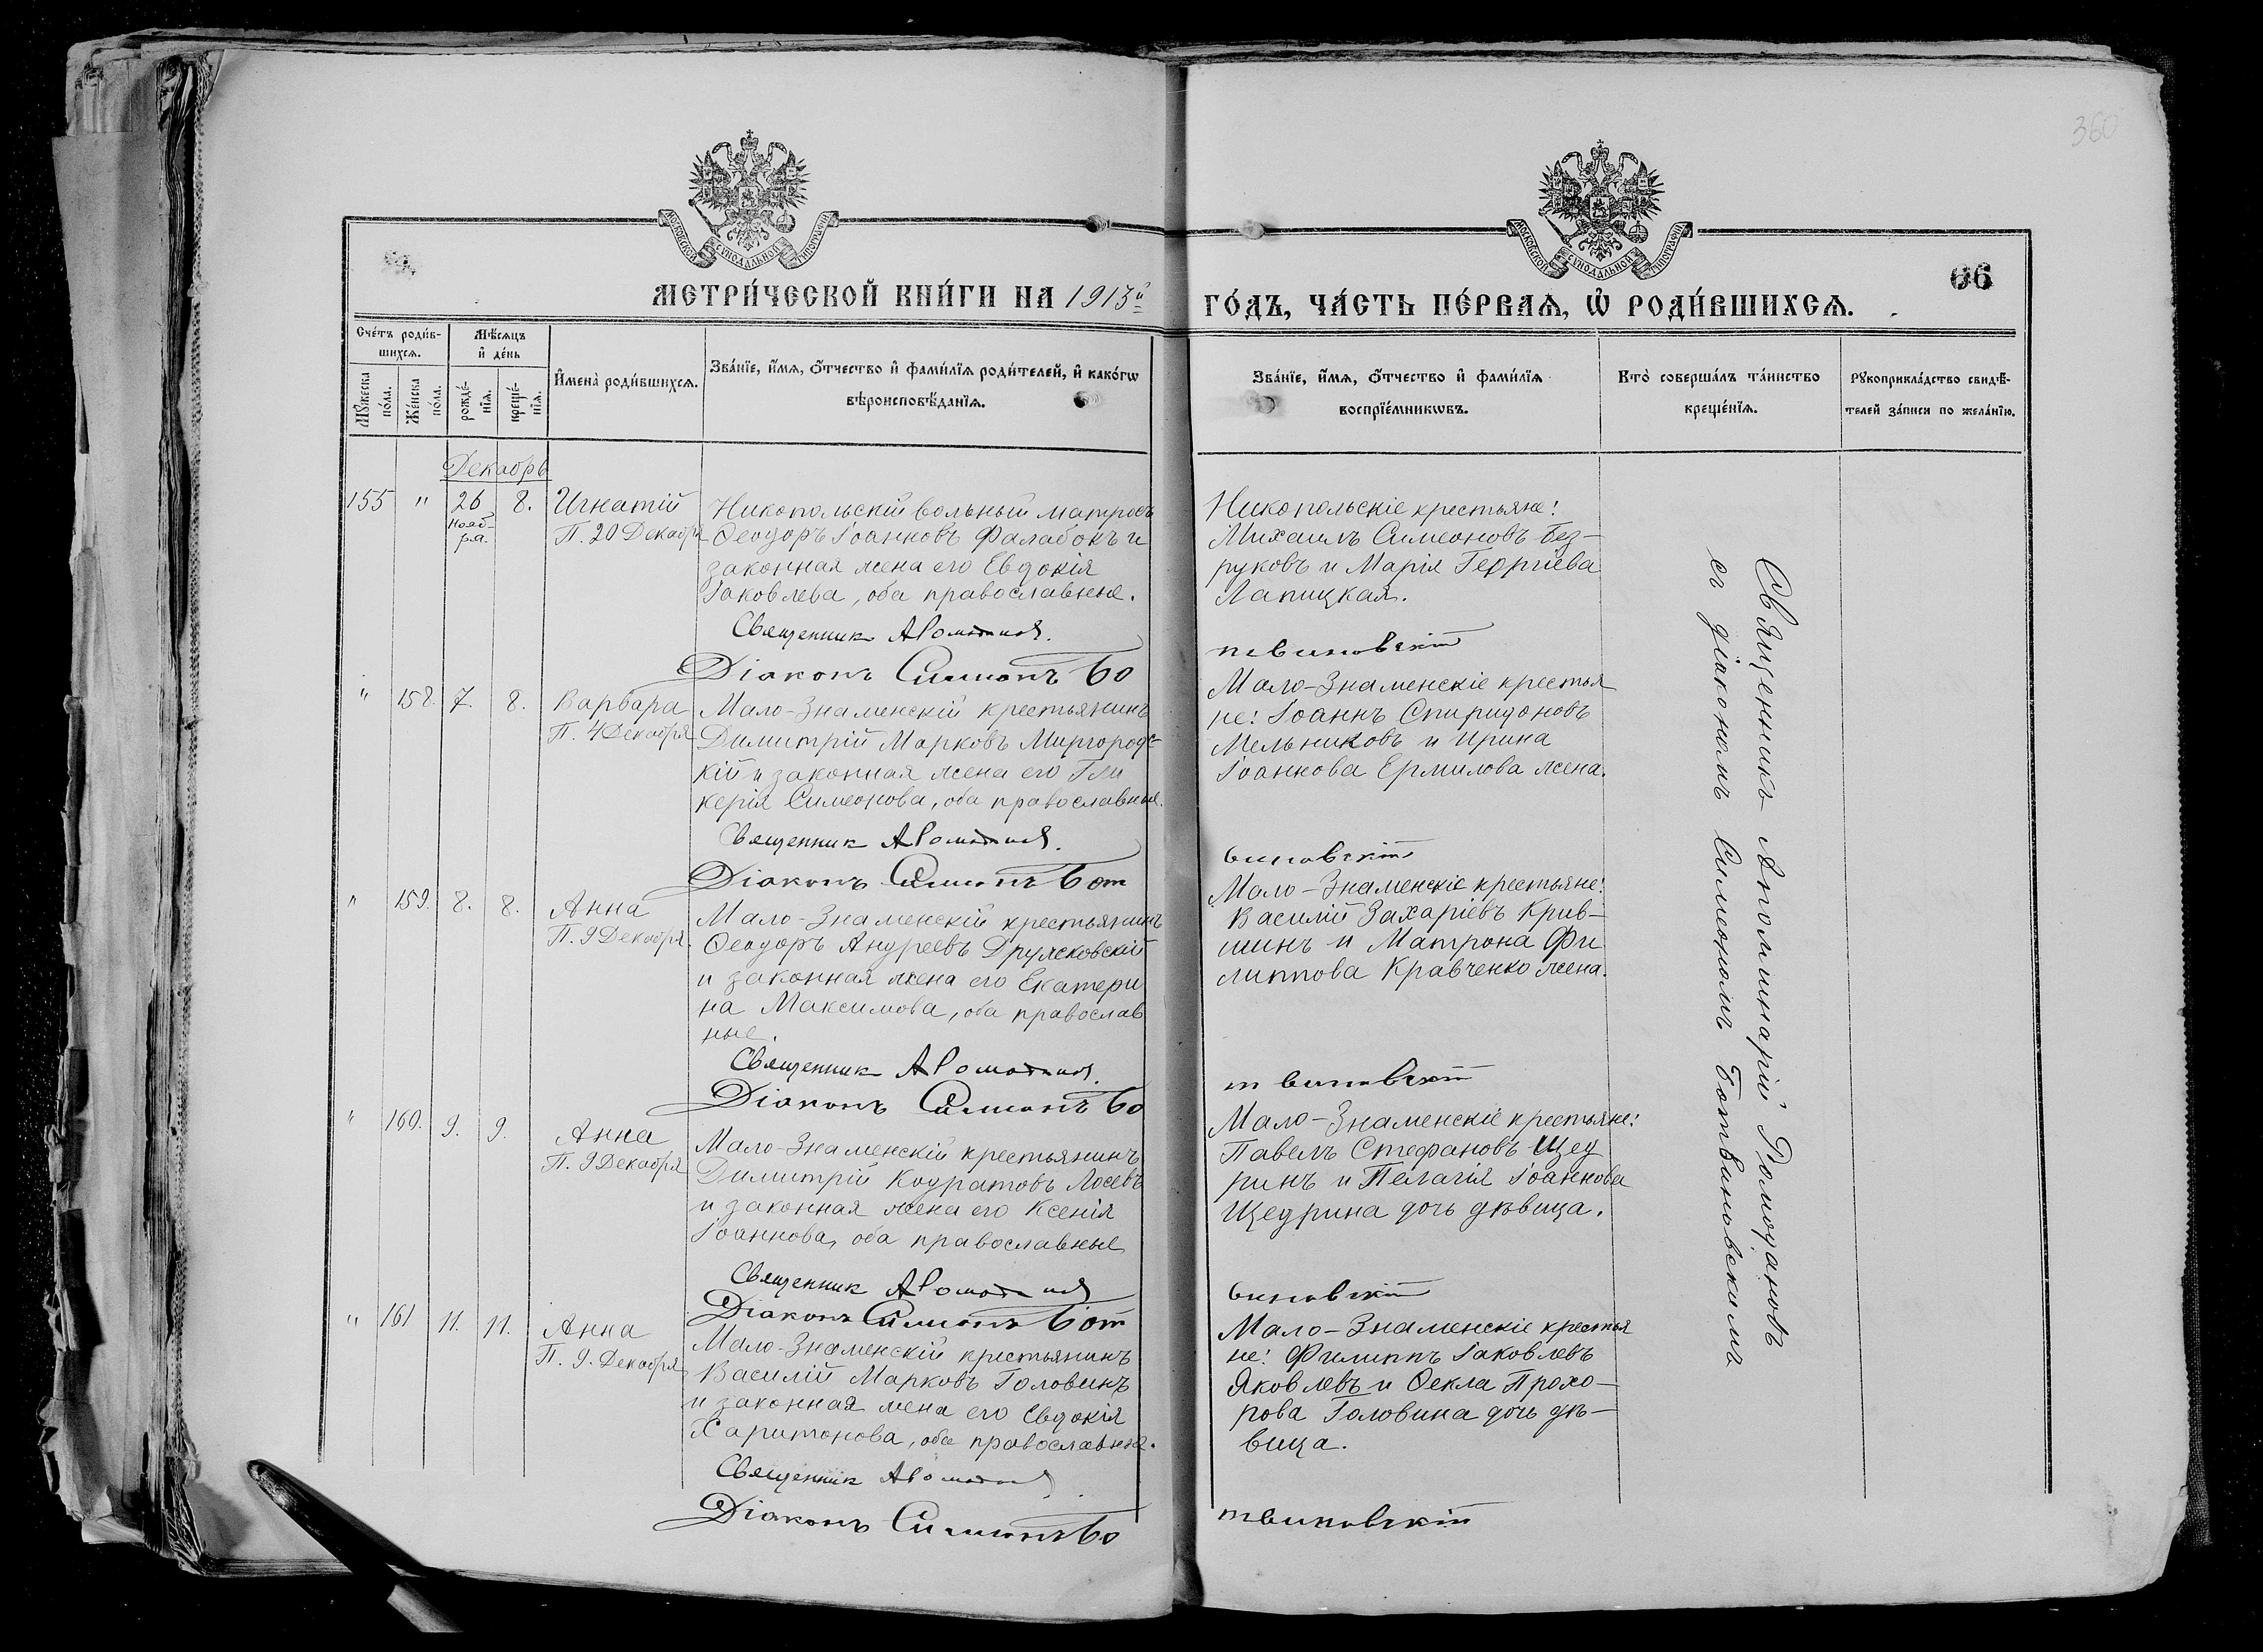 360
МОСКОВСКОЙ СѴНОДАЛЬНОЙ ТИПОГРАФІИ
МОСКОВСКОЙ СѴНОДАЛЬНОЙ ТИПОГРАФІИ
66
МЕТРИ́ЧЕСКОЙ КНИ́ГИ НА 1913й
ГО́ДЪ, ЧА́СТЬ ПЕ́РВАѦ, Ѡ҆ РОДИ́ВШИХСѦ.
Сче́тъ роди́в-
шихсѧ.
Мѣ́сѧцъ
и҆ де́нь
Мꙋ́жеска
по́ла.
Же́нска
по́ла.
рожде́-
нїѧ.
креще́-
нїѧ.
И҆мена̀ роди́вшихсѧ.
Зва́нїе, и҆́мѧ, ѻ҆́тчество и҆ фами́лїѧ роди́телей, и҆ како́гѡ
вѣроисповѣ́данїѧ.
Зва́нїе, и҆́мѧ, ѻ҆́тчество и҆ фами́лїѧ
воспрїе́мникѡвъ.
Кто̀ соверша́лъ та́инство
креще́нїѧ.
Рꙋкоприкла́дство свидѣ́-
телей за́писи по жела́нїю.
Декабрь
155 " 26 8. Игнатій
Нояб-
ря.
П. 20 Декабря
Никопольскій вольный матросъ
Ѳеодоръ Іоанновъ Фалабокъ и
законная жена его Евдокія
Іаковлева, оба православные.
Священник А Ромоданов.
Діаконъ Симеонъ Бо
Никопольскіе крестьяне:
Михаилъ Симеоновъ Без-
руковъ и Марія Георгіева
Лапицкая.
твиновскій
" 158. 7. 8. Варвара
П. 4 Декабря
Мало-Знаменскій крестьянинъ
Димитрій Марковъ Миргородс-
кій и законная жена его Гли
керія Симеонова, оба православные.
Священник А Ромоданов.
Діаконъ Симеонъ Бот
Мало-Знаменскіе крестья
не: Іоаннъ Спиридоновъ
Мельниковъ и Ирина
Іоаннова Ермилова жена.
виновскій
" 159. 8. 8. Анна
П. 9 Декабря.
Мало-Знаменскій крестьянинъ
Ѳеодоръ Андреевъ Дружсковскій
и законная жена его Екатери
на Максимова, оба православ
ные.
Священник А Ромоданов.
Діаконъ Симеонъ Бо
Мало-Знаменскіе крестьяне:
Василій Захаріевъ Крив-
шинъ и Матрона Фи
липпова Кравченко жена.
твиновскій
" 160. 9. 9. Анна
П. 9 Декабря
Мало-Знаменскій крестьянинъ
Димитрій Кодратовъ Лосевъ
и законная жена его Ксенія
Іоаннова, оба православные
Священник А Ромоданов
Діаконъ Симеонъ Бот
Мало-Знаменскіе крестьяне:
Павелъ Стефановъ Щед
ринъ и Пелагія Іоаннова
Щедрина дочь дѣвица.
виновскій
" 161 11. 11. Анна
П. 9. Декабря
Мало-Знаменскій крестьянинъ
Василій Марковъ Головинъ
и законная жена его Евдокія
Харитонова, оба православные.
Священник А Ромоданов
Діаконъ Симеонъ Бо
Мало-Знаменскіе крестья
не: Филиппъ Іаковлевъ
Яковлевъ и Ѳекла Прохо-
рова Головина дочь дѣ-
вица.
твиновскій
Священникъ Аполлинарій Ромодановъ
съ діакономъ Симеономъ Ботвиновскимъ